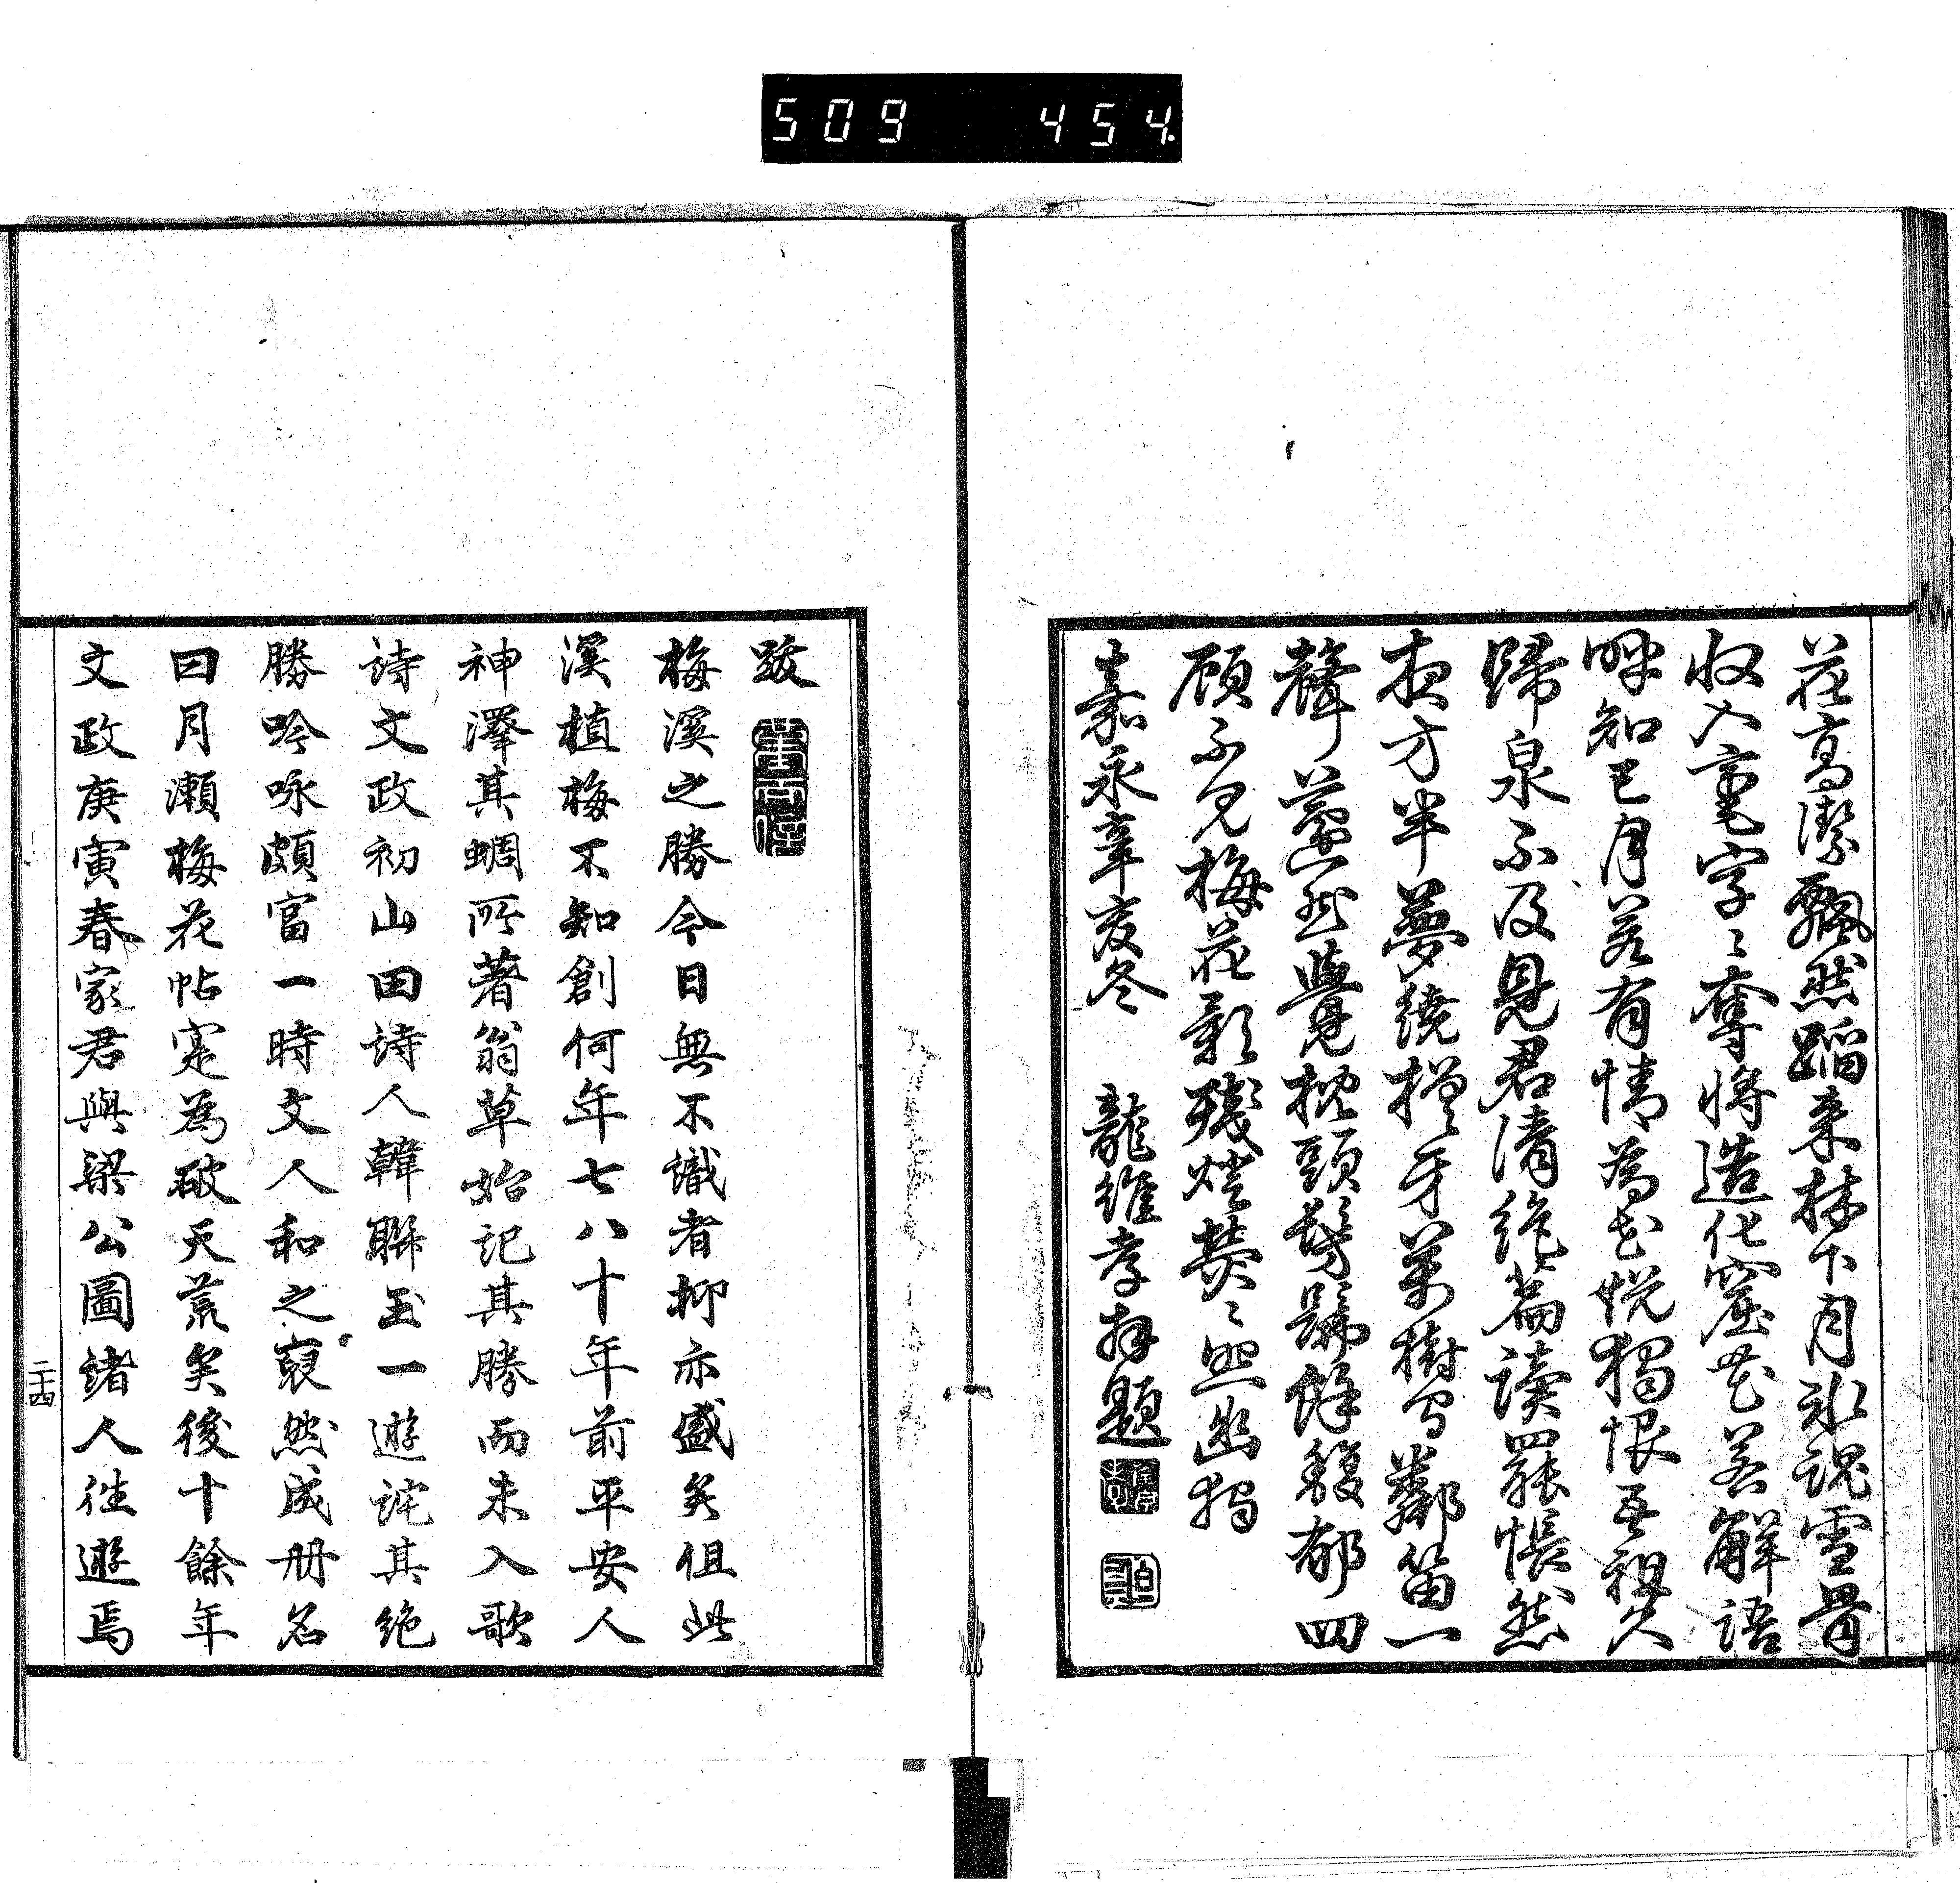 509 454
花高潔飄然蹈来林下月氷魂雪骨
收入毫字〻奪將造化窟花若解語
呼知己月若有情為花悦獨恨吾祖久
歸泉不及見君清絶篇讀罷悵然
夜方半夢繞槎牙萬樹鄰笛一
聲蘧然覺枕頭髣髴餘馥郁四
顧不見梅花影殘燈熒〻照幽獨
嘉永辛亥冬 龍維孝拝題
跋
梅溪之勝今日無不識者抑亦盛矣但此
溪植梅不知創何年七八十年前平安人
神澤其蜩所著翁草始記其勝而未入歌
詩文政初山田詩人韓聯玉一遊詫其絶
勝吟咏頗富一時文人和之裒然成册名
曰月瀬梅花帖寔為破天荒矣後十餘年
文政庚寅春家君與梁公圖諸人徃遊焉
二十四